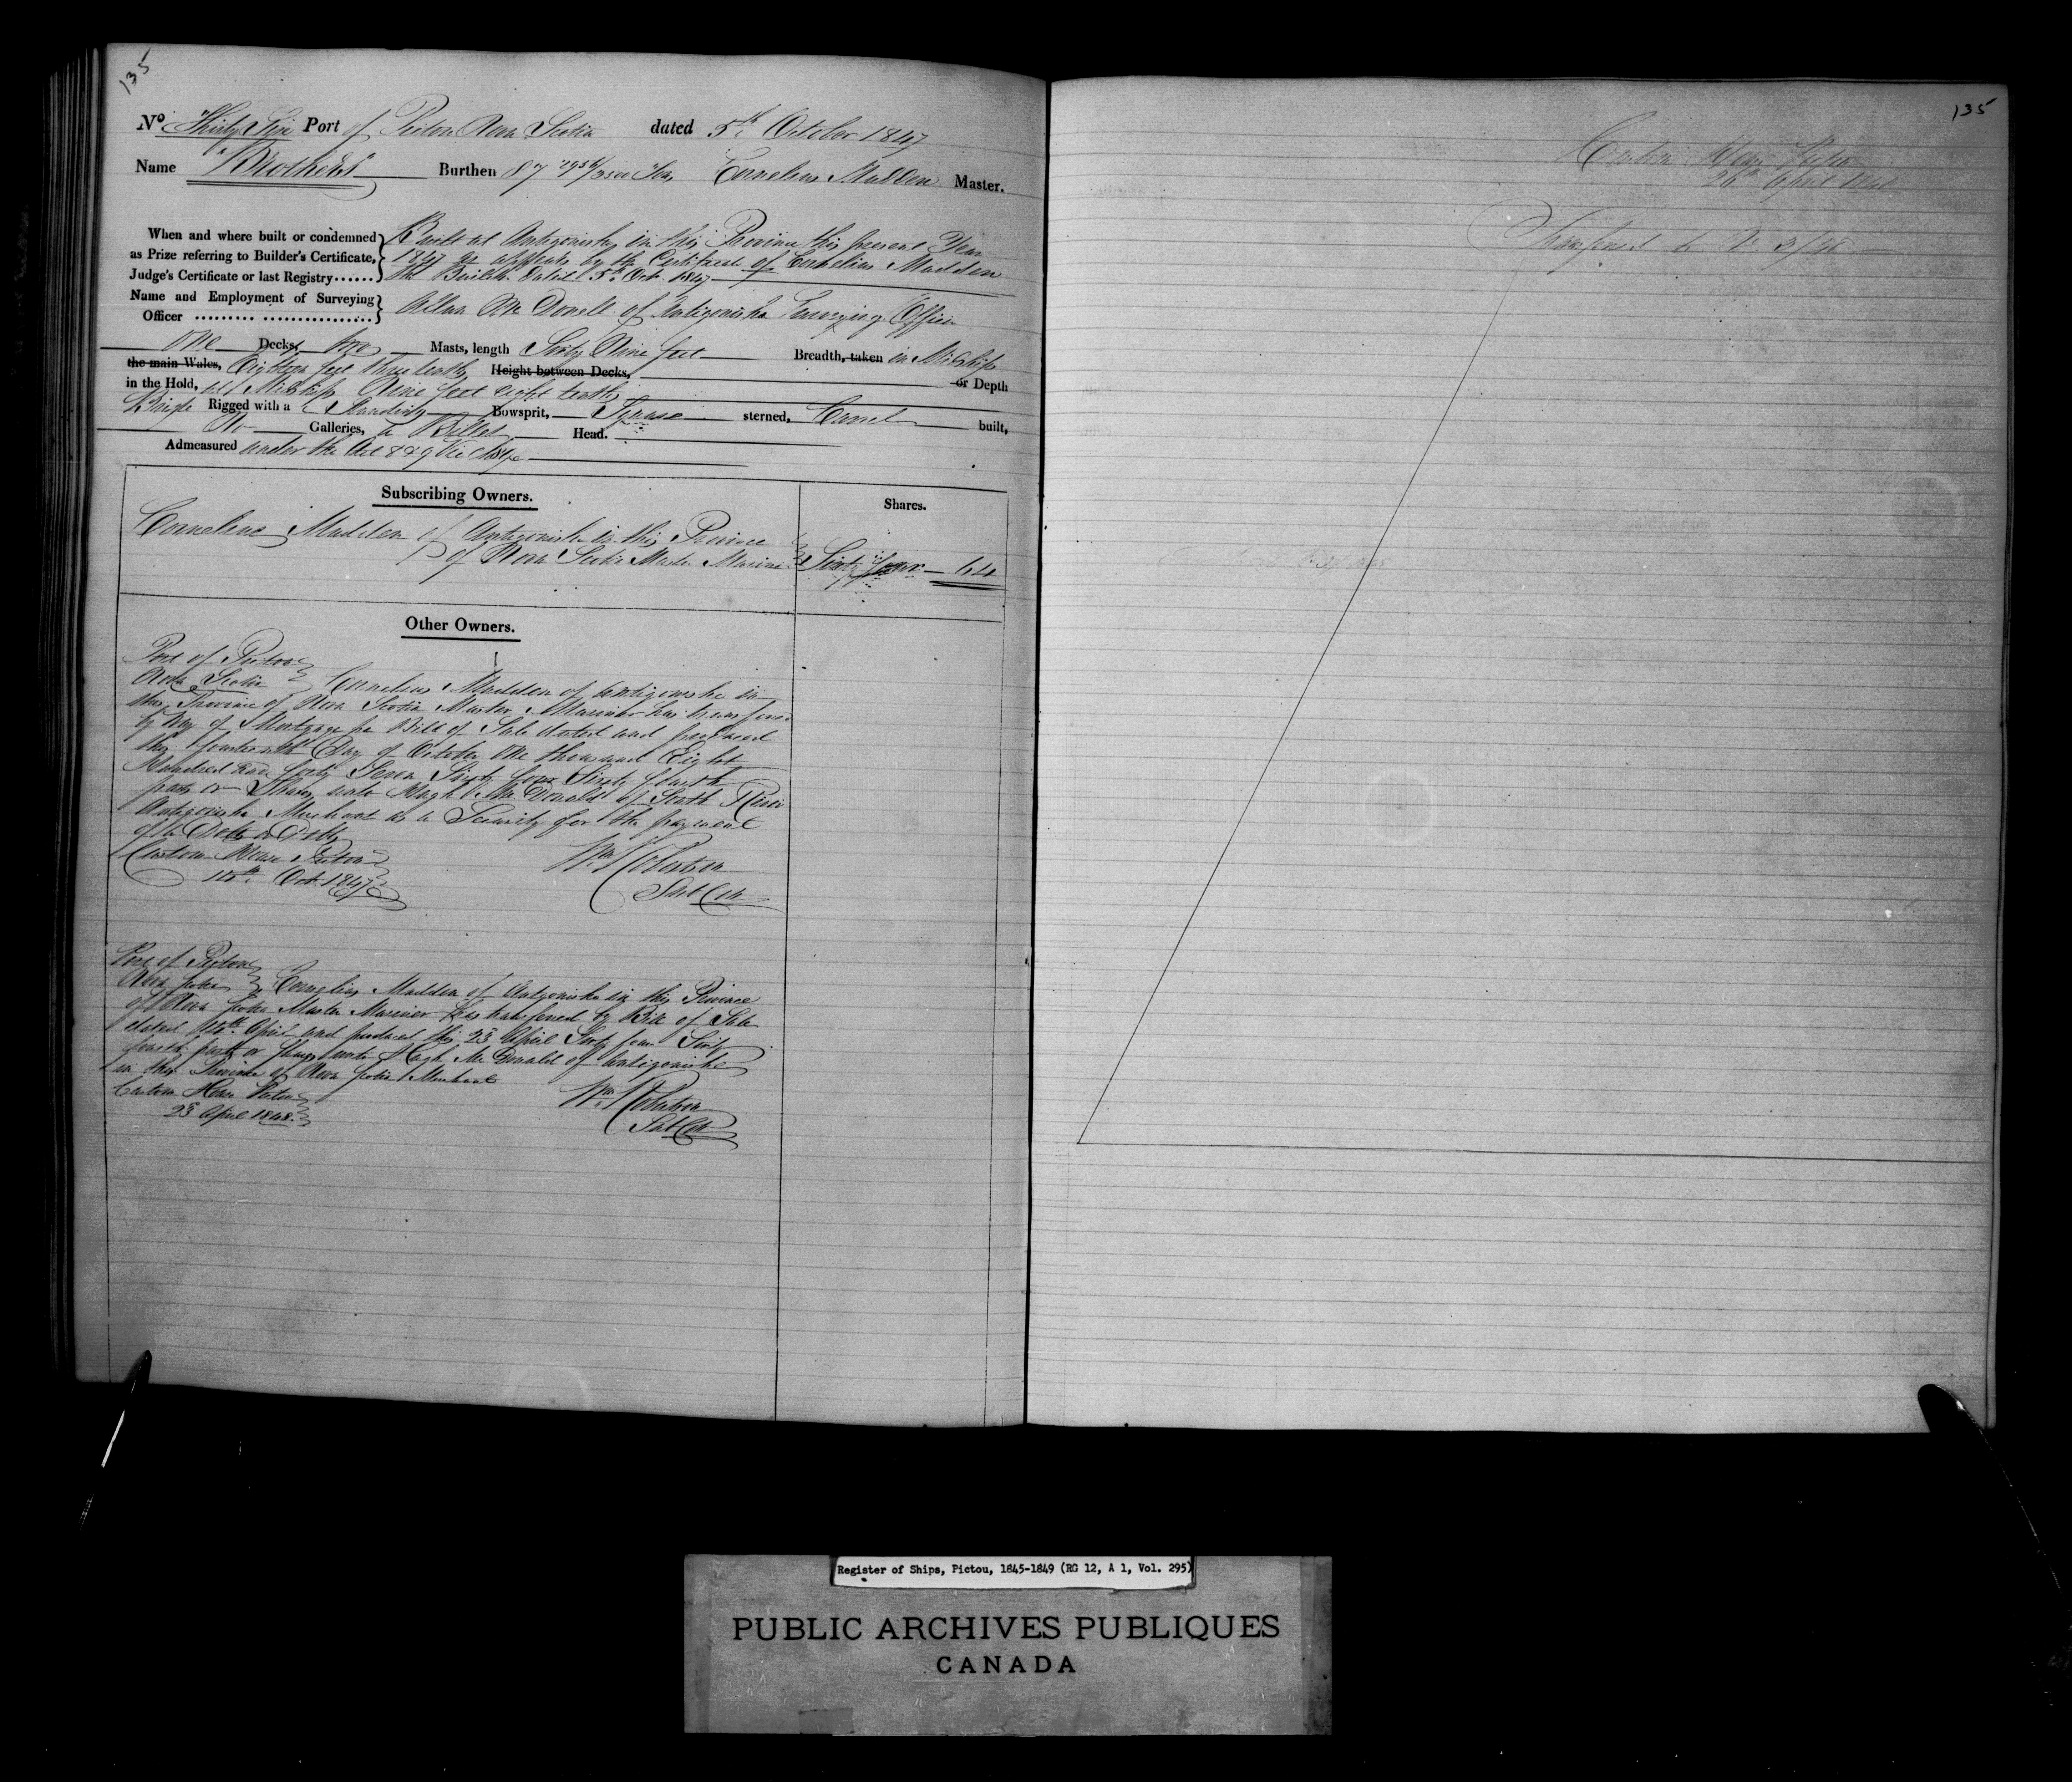 135
No Thirty Five Port of Pictou Nova Scotia dated 5th October 1847
Name "Brothers" Burthen 87 /3500 Tons Cornelius Madden Master.
When and where built or condemned as Prize referring to Builder's Certificate, Judge's Certificate or last Registry......
Built at Antigonishe in this Province this present Year
1847 as appears by the Certificate of Cornelius Madden
the Builder dated 5th Oct. 1847
Name and Employment of Surveying Officer ......... ................
Allan McDonell of Antigonishe Surveying Officer
One Decks, two Masts, length Sixty Nine feet Breadth, taken in Midships
the main Wales, Eighteen feet three tenths Height between Decks, or Depth
in the Hold, at Midships Nine feet eight tenths
Brigte Rigged with a Standing Bowsprit, Square sterned, Carvel built,
No Galleries, a Billet Head.
Admeasured under the Act 8 & 9 Vic Chap
Subscribing Owners.
Shares.
Cornelius Madden of Antigonishe in this Province
of Nova Scotia Master Mariner
Sixty four — 64
Other Owners.
Port of Pictou
Nova Scotia Cornelius Madden of Antigonishe in
this Province of Nova Scotia Master Mariner has transferred
by Way of Mortgage per Bill of Sale dated and produced
this fourteenth Day of October One thousand Eight
Hundred and forty Seven Sixty four Sixty fourth
parts or Shares unto Hugh McDonald of South River
Antigonishe Merchant as a Security for the payment
of a Debt or Debts
Custom House Pictou
14th Oct. 1847
Wm Robertson
Sub Col
Port of Pictou
Nova Scotia Cornelius Madden of Antigonishe in this Province
of Nova Scotia Master Mariner has transferred by Bill of Sale
dated 14th April and produced this 25 April Sixty four Sixty
fourth parts or Shares unto Hugh McDonald of Antigonishe
in this Province of Nova Scotia Merchant
Custom House Pictou
25 April 1848.
Wm Robertson
Sub Col
135
Custom House Pictou
26th April 1848
Transferred to No 3/48
Register of Ships, Pictou, 1845-1849 (RG 12, A 1, Vol. 295)
PUBLIC ARCHIVES PUBLIQUES
CANADA